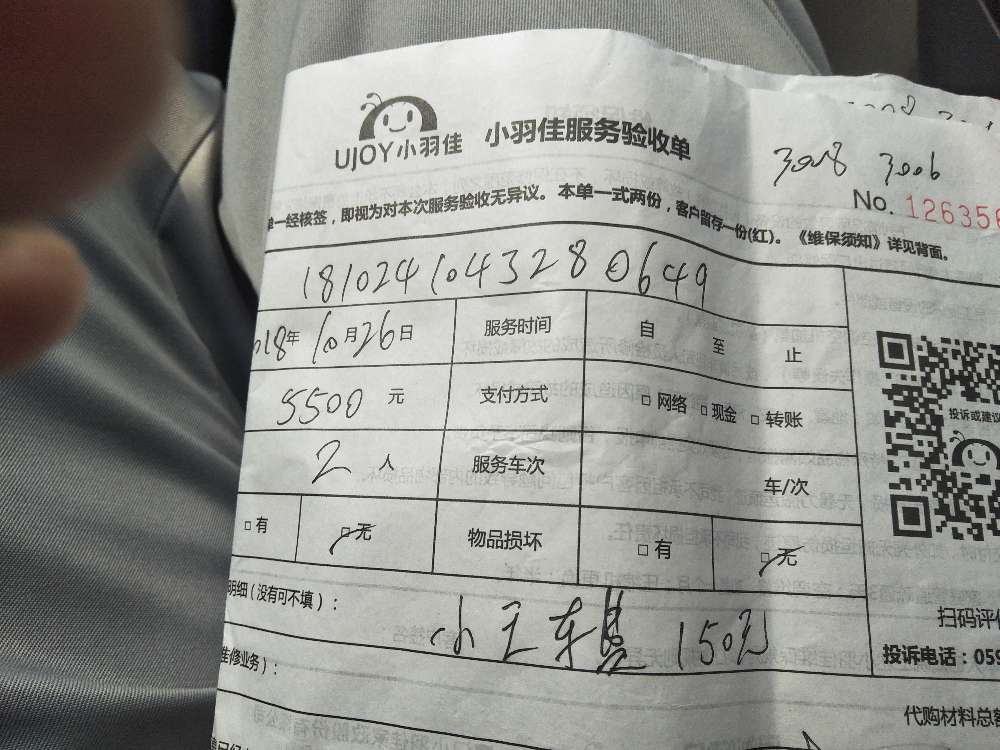 UJOY小羽佳 小羽佳服务验收单
3008 3006
No. 126356
单一经核签，即视为对本次服务验收无异议。本单一式两份，客户留存一份(红)。《维保须知》详见背面。
1810241043280649
018年10月26日 服务时间 自 至 止
5500 元 支付方式 □ 网络 □ 现金 □ 转账
2 人 服务车次 车/次
□ 有 □ 无 物品损坏 □ 有 □ 无
投诉或建议
明细（没有可不填）：
小王车费 150元
扫码评价
投诉电话：059
维修业务）：
代购材料总额